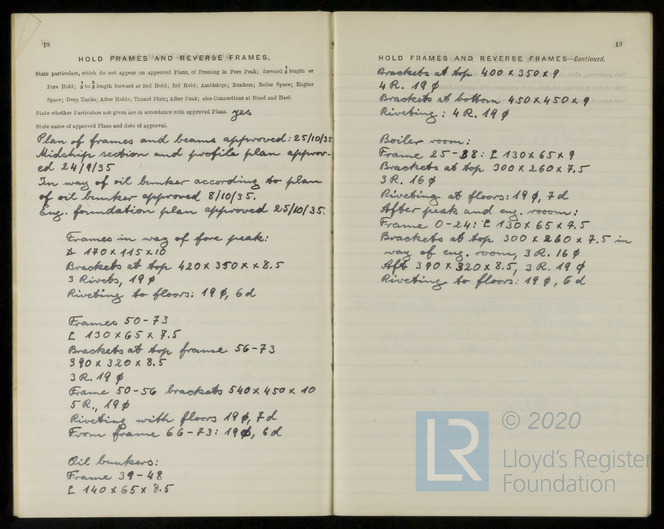 18
HOLD FRAMES AND REVERSE FRAMES.
State particulars, which do not appear on approved Plans, of Framing in Fore Peak; forward ½ length or
Fore Hold; ½ to ¾ length forward or 2nd Hold; 3rd Hold; Amidships; Bunkers; Boiler Space; Engine
Space; Deep Tanks; After Holds; Tunnel Flats; After Peak; also Connections at Head and Heel.
State whether Particulars not given are in accordance with approved Plans. yes
State name of approved Plans and date of approval.
Plan of frames and beams approved: 25/10/35
Midship section and profile plan approv-
ed 24/9/35
In way of oil bunker according to plan
of oil bunker approved 8/10/35.
Eng. foundation plan approved 25/10/35.
Frames in way of fore peak:
170 x 115 x 10
Brackets at top 420 x 350 x 8.5
3 Rivets, 19 ϕ
Riveting to floors: 19 ϕ, 6 d
Frames 50-73
[ 130 x 65 x 7.5
Brackets at top frame 56-73
390 x 320 x 8.5
3 R. 19 ϕ
Frame 50-56 brackets 540 x 450 x 10
5 R., 19 ϕ
Riveting with floors 19 ϕ, 7 d
From frame 66-73: 19 ϕ, 6 d
Oil bunkers:
Frame 39-48
[ 140 x 65 x 8.5
19
HOLD FRAMES AND REVERSE FRAMES—Continued.
Brackets at top 400 x 350 x 9
4 R. 19 ϕ
Brackets at bottom 450 x 450 x 9
Riveting: 4 R. 19 ϕ
Boiler room:
Frame 25-38: [ 130 x 65 x 9
Brackets at top 300 x 260 x 7.5
3 R. 16 ϕ
Riveting at floors: 19 ϕ, 7 d
After peak and eng. rooom:
Frame 0-24: [ 130 x 65 x 7.5
Brackets at top 300 x 260 x 7.5 in
way of eng. room, 3 R. 16 ϕ
Aft 390 x 320 x 8.5, 3 R. 19 ϕ
Riveting to floors: 19 ϕ, 6 d
LR
© 2020
Lloyd's Register
Foundation